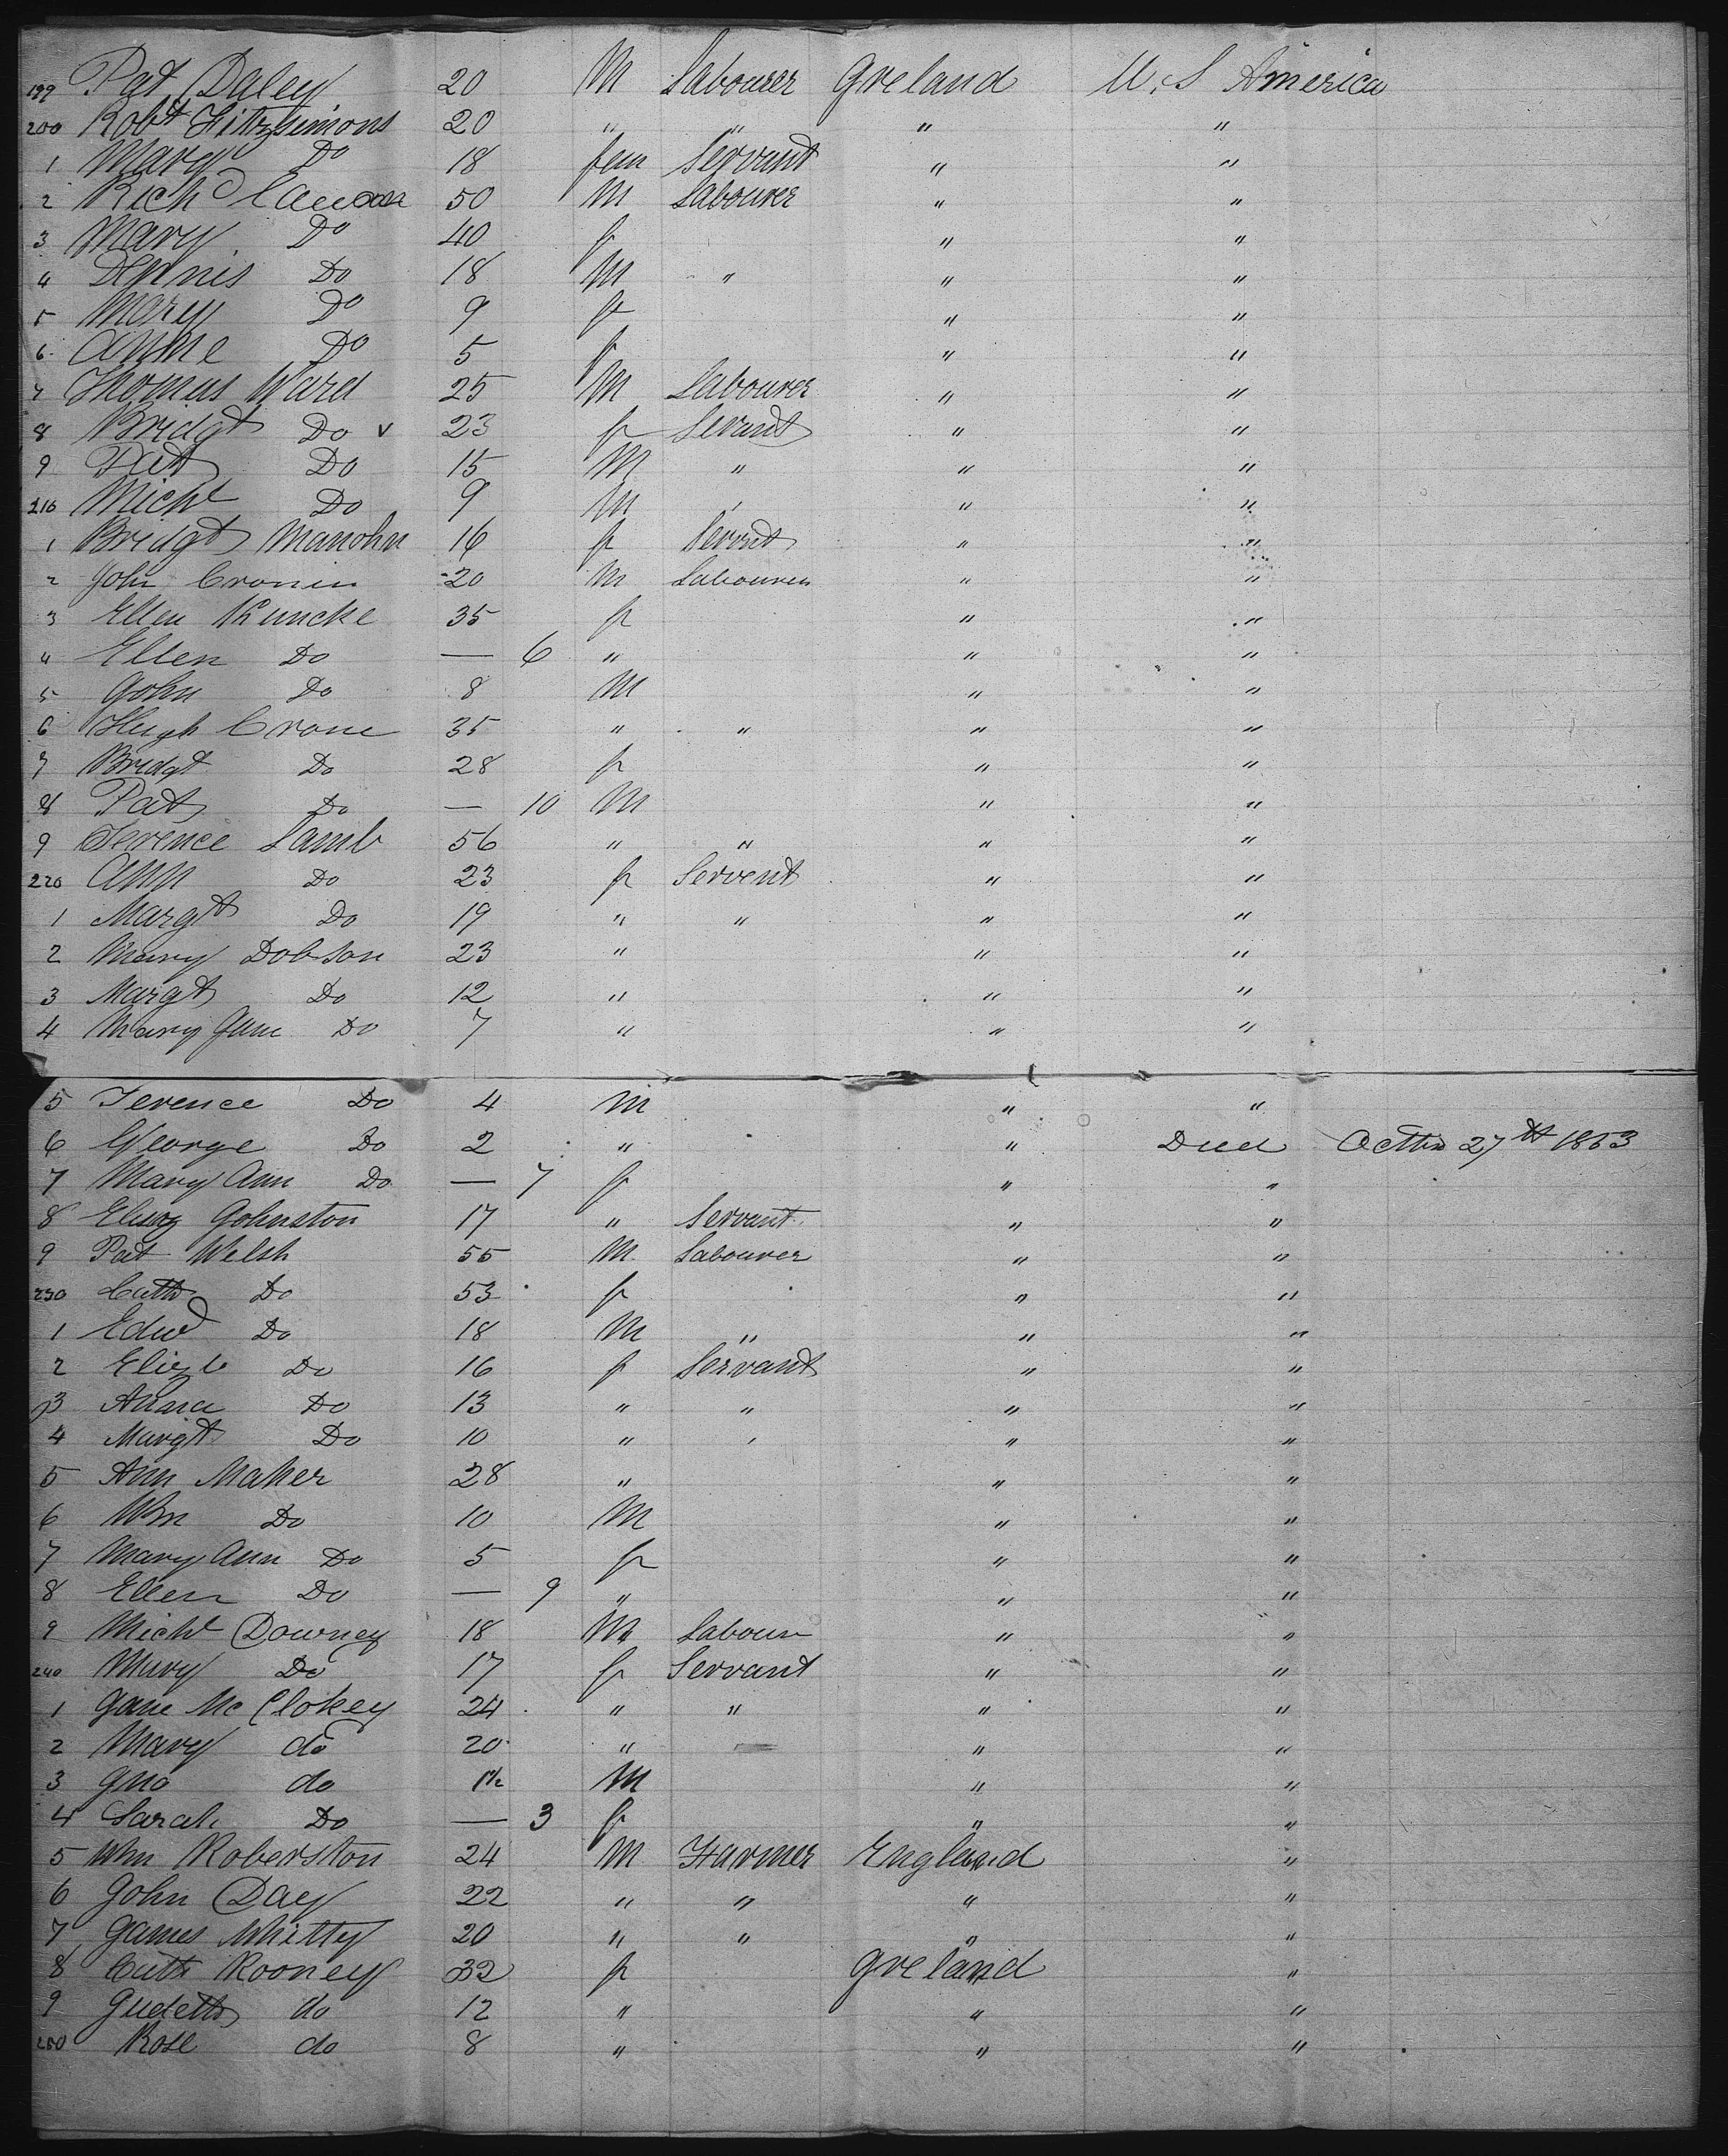 199 Pat Daley 20 M Labourer Ireland U.S America
200 Robt Fitzsimons 20 " " " "
1 Mary Do 18 fem Servant " "
2 Rich 50 M Labourer " "
3 Mary Do 40 f " "
4 Dennis Do 18 M " " "
5 Mary Do 9 f " "
6 Anne Do 5 f " "
7 Thomas Ward 25 M Labourer " "
8 Bridgt Do v 23 f Servant " "
9 Pat Do 15 M " " "
210 Michl Do 9 M " " "
1 Bridgt 16 f Servnt " "
2 John Cronin 20 M Labourer " "
3 Ellen 35 f " "
4 Ellen Do — 6 " " "
5 John Do 8 M " "
6 Hugh Crone 35 " " " "
7 Bridgt Do 28 f " "
8 Pat Do — 10 M " "
9 Terence Lamb 56 " " " "
220 Ann Do 23 f Servent " "
1 Margt Do 19 " " " "
2 Mary Dobson 23 " " "
3 Margt Do 12 " " "
4 Mary Jane Do 7 " " "
5 Terence Do 4 M " "
6 George Do 2 " " Died 27th 1863
7 Mary Ann Do — 7 f " "
8 Johnston 17 " Servant " "
9 Pat Welsh 55 M Labourer " "
230 Cath Do 53 f " "
1 Edwd Do 18 M " " "
2 Elizb Do 16 f Servant " "
3 Anna Do 13 " " " "
4 Margt Do 10 " " " "
5 Ann Maher 28 " " "
6 Wm Do 10 M " "
7 Mary Ann Do 5 f " "
8 Ellen Do — 9 " " "
9 Michl Downey 18 M Labour " "
240 Mary Do 17 f Servant " "
1 Jane Mc Clokey 24 " " " "
2 Mary do 20 " " "
3 Jno do 1½ M " "
4 Sarah Do — 3 f " "
5 Wm Roberston 24 M Farmer England "
6 John Day 22 " " " "
7 James Whitty 20 " " " "
8 Cath Rooney 32 f Ireland "
9 Judeth do 12 " " "
250 Rose do 8 " " "